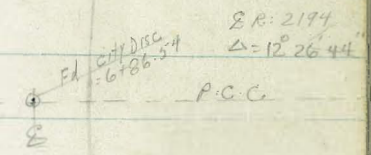 ℄ R: 2194
Δ = 12° 26' 44"
Fd City Disc
= 6+86.54
P.C.C.
℄